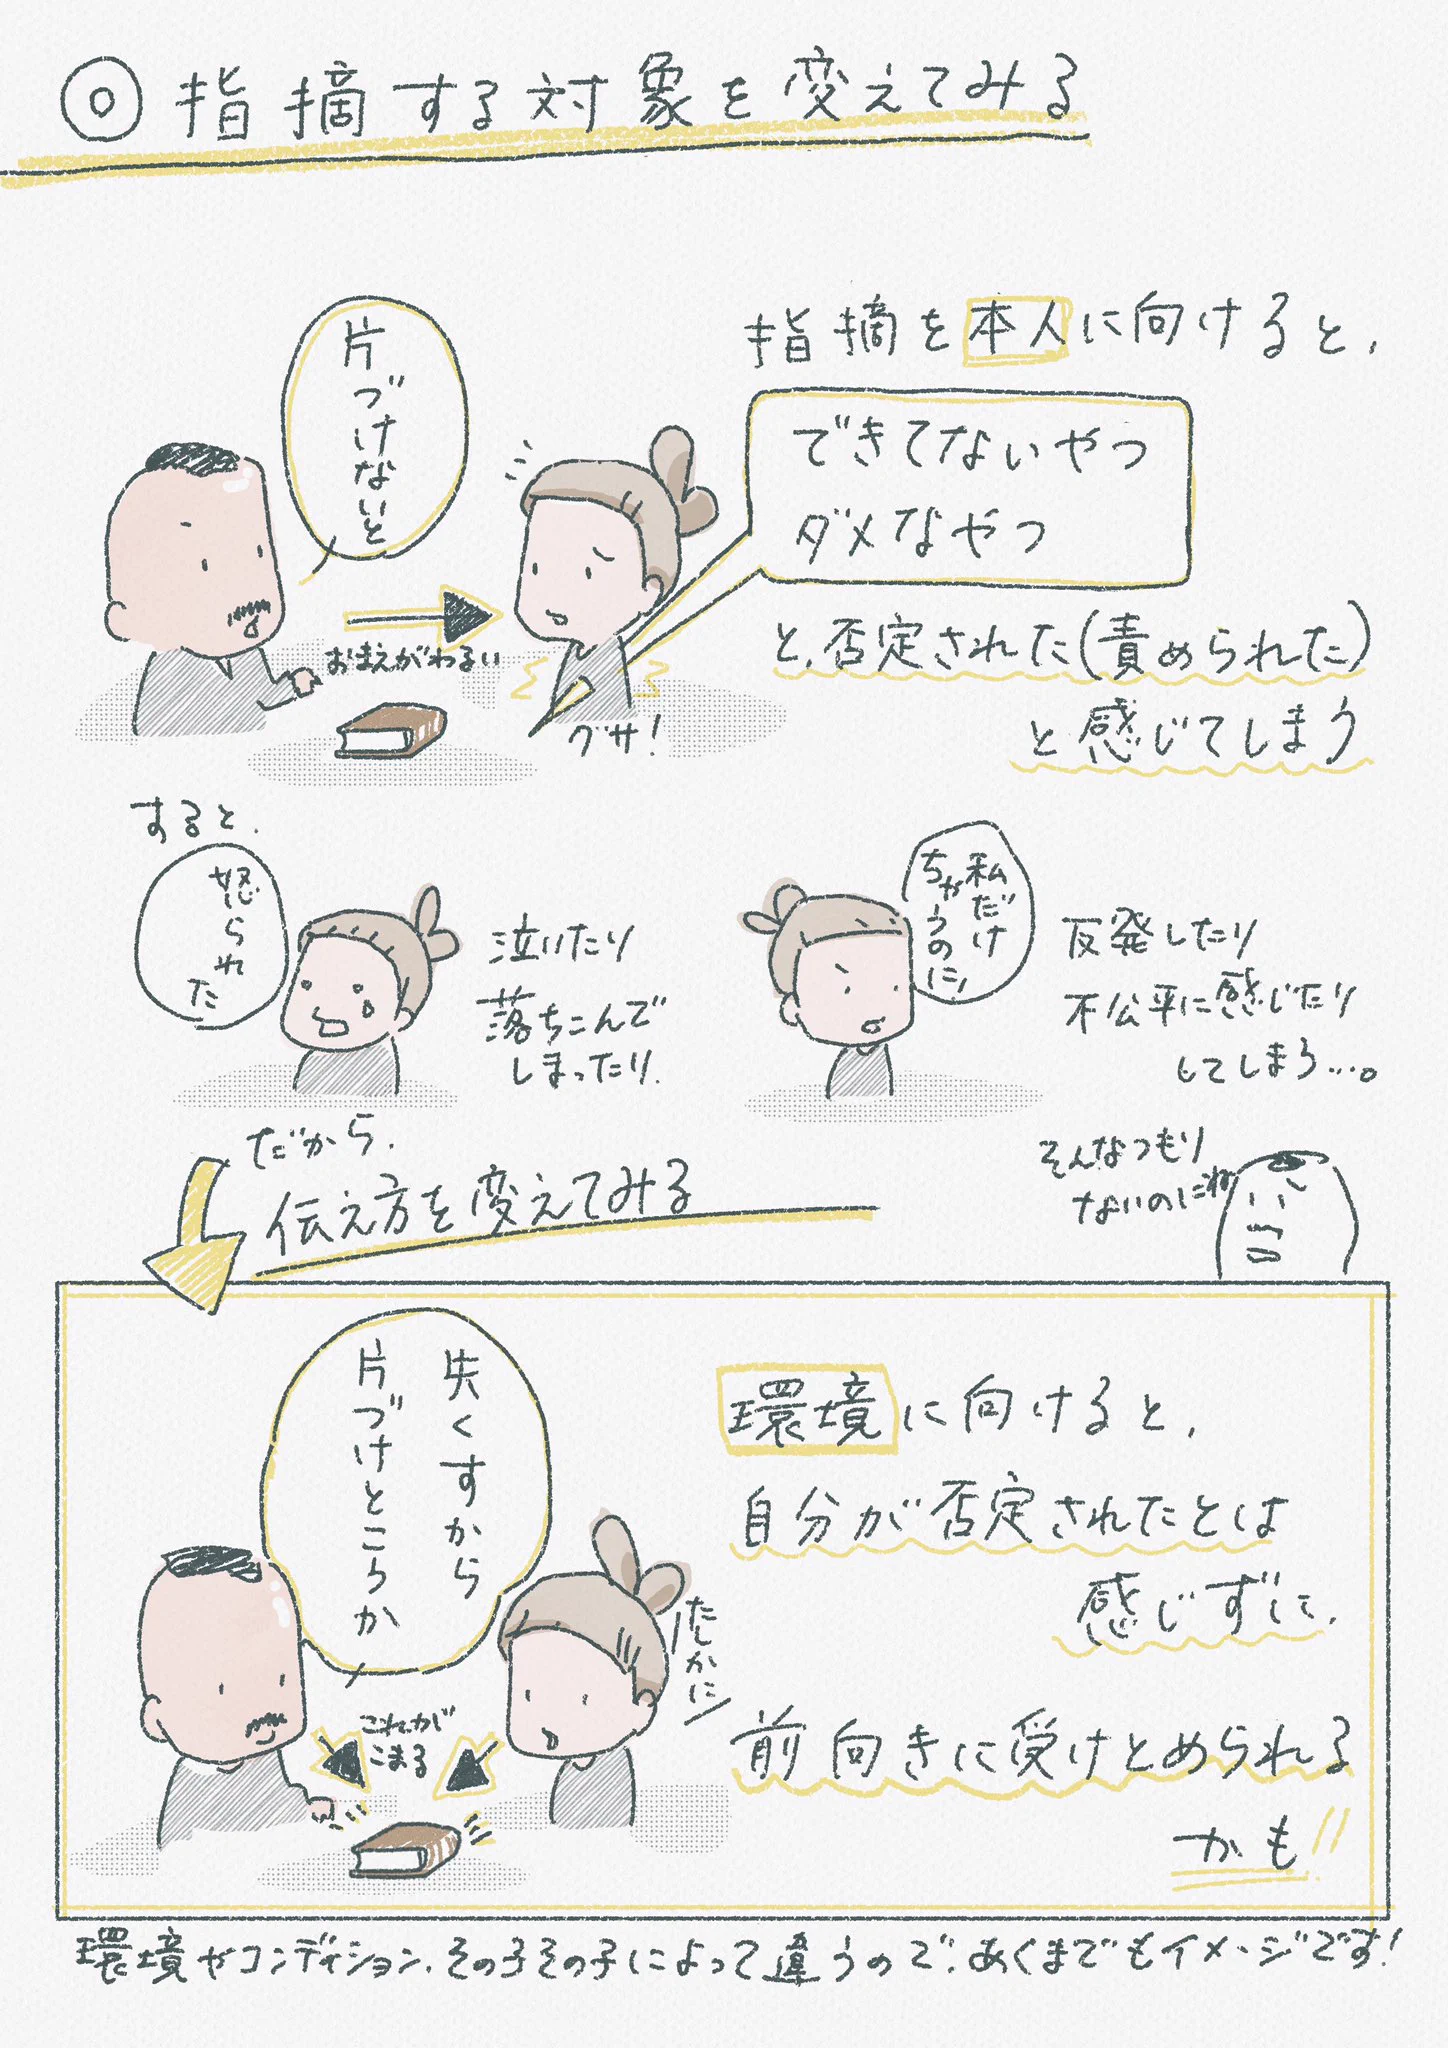 ◎指摘する対象を変えてみる
指摘を本人に向けると、
片づけないと
できてないやつ
ダメなやつ
おまえがわるい
グサ!
と、否定された(責められた)
と感じてしまう
すると、
怒られ
た
泣いたり
落ちこんで
しまったり、
私だけ
ちがうのに!
反発したり
不公平に感じたり
してしまう…。
そんなつもり
ないのにね
だから、
伝え方を変えてみる
失くすから
片づけとこうか
環境に向けると、
自分が否定されたとは
感じずに、
たしかに
これが
こまる
前向きに受けとめられる
かも
環境やコンディション、その子その子によって違うので、あくまでもイメージです!